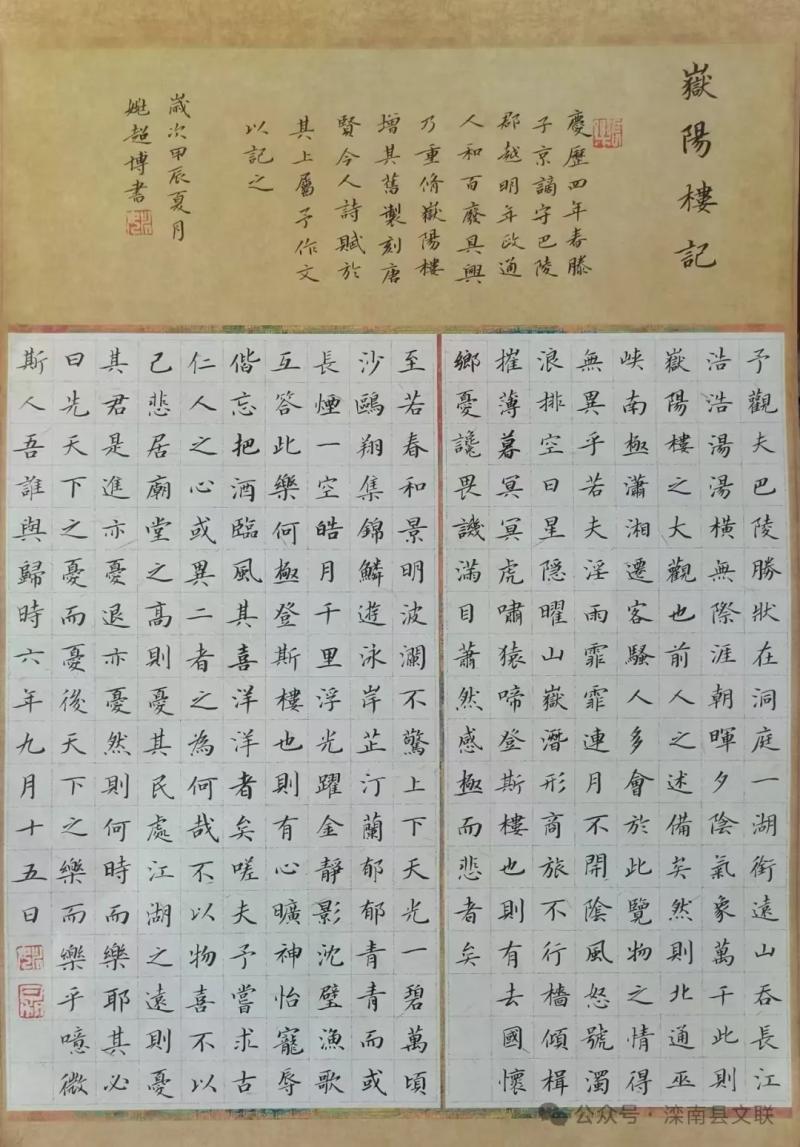 嶽陽樓記
慶歷四年春滕
子京謫守巴陵
郡越明年政通
人和百廢具興
乃重脩嶽陽樓
增其舊製刻唐
賢今人詩賦於
其上屬予作文
以記之
歲次甲辰夏月
姚超博書
予觀夫巴陵勝狀在洞庭一湖銜遠山吞長江
浩浩湯湯橫無際涯朝暉夕陰氣象萬千此則
嶽陽樓之大觀也前人之述備矣然則北通巫
峽南極瀟湘遷客騷人多會於此覽物之情得
無異乎若夫淫雨霏霏連月不開陰風怒號濁
浪排空日星隱曜山嶽潛形商旅不行檣傾楫
摧薄暮冥冥虎嘯猿啼登斯樓也則有去國懷
鄉憂讒畏譏滿目蕭然感極而悲者矣
至若春和景明波瀾不驚上下天光一碧萬頃
沙鷗翔集錦鱗遊泳岸芷汀蘭郁郁青青而或
長煙一空皓月千里浮光躍金靜影沈璧漁歌
互答此樂何極登斯樓也則有心曠神怡寵辱
偕忘把酒臨風其喜洋洋者矣嗟夫予嘗求古
仁人之心或異二者之為何哉不以物喜不以
己悲居廟堂之高則憂其民處江湖之遠則憂
其君是進亦憂退亦憂然則何時而樂耶其必
曰先天下之憂而憂後天下之樂而樂乎噫微
斯人吾誰與歸時六年九月十五日
公众号·滦南县文联